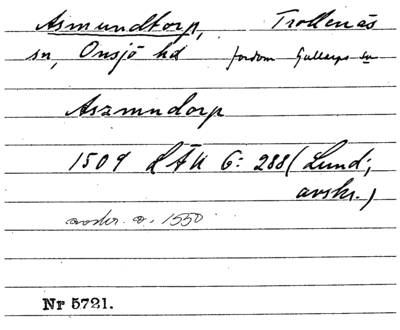 Asmundtorp, Trollenäs
sn, Onsjö hd fordom Gullarps sn
Aszmndorp
1509 LÄU 6: 288 (Lund;
avskr.)
avskr. o. 1550
Nr 5721.